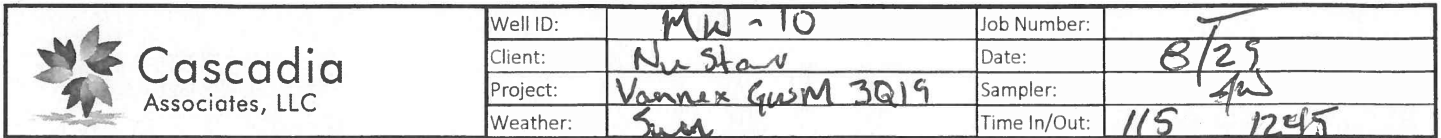 Cascadia
Associates, LLC
Well ID: MW-10 Job Number:
Client: NuStar Date: 8/29
Project: Vannex GWSM 3Q19 Sampler: AW
Weather: Sun Time In/Out: 115 1245